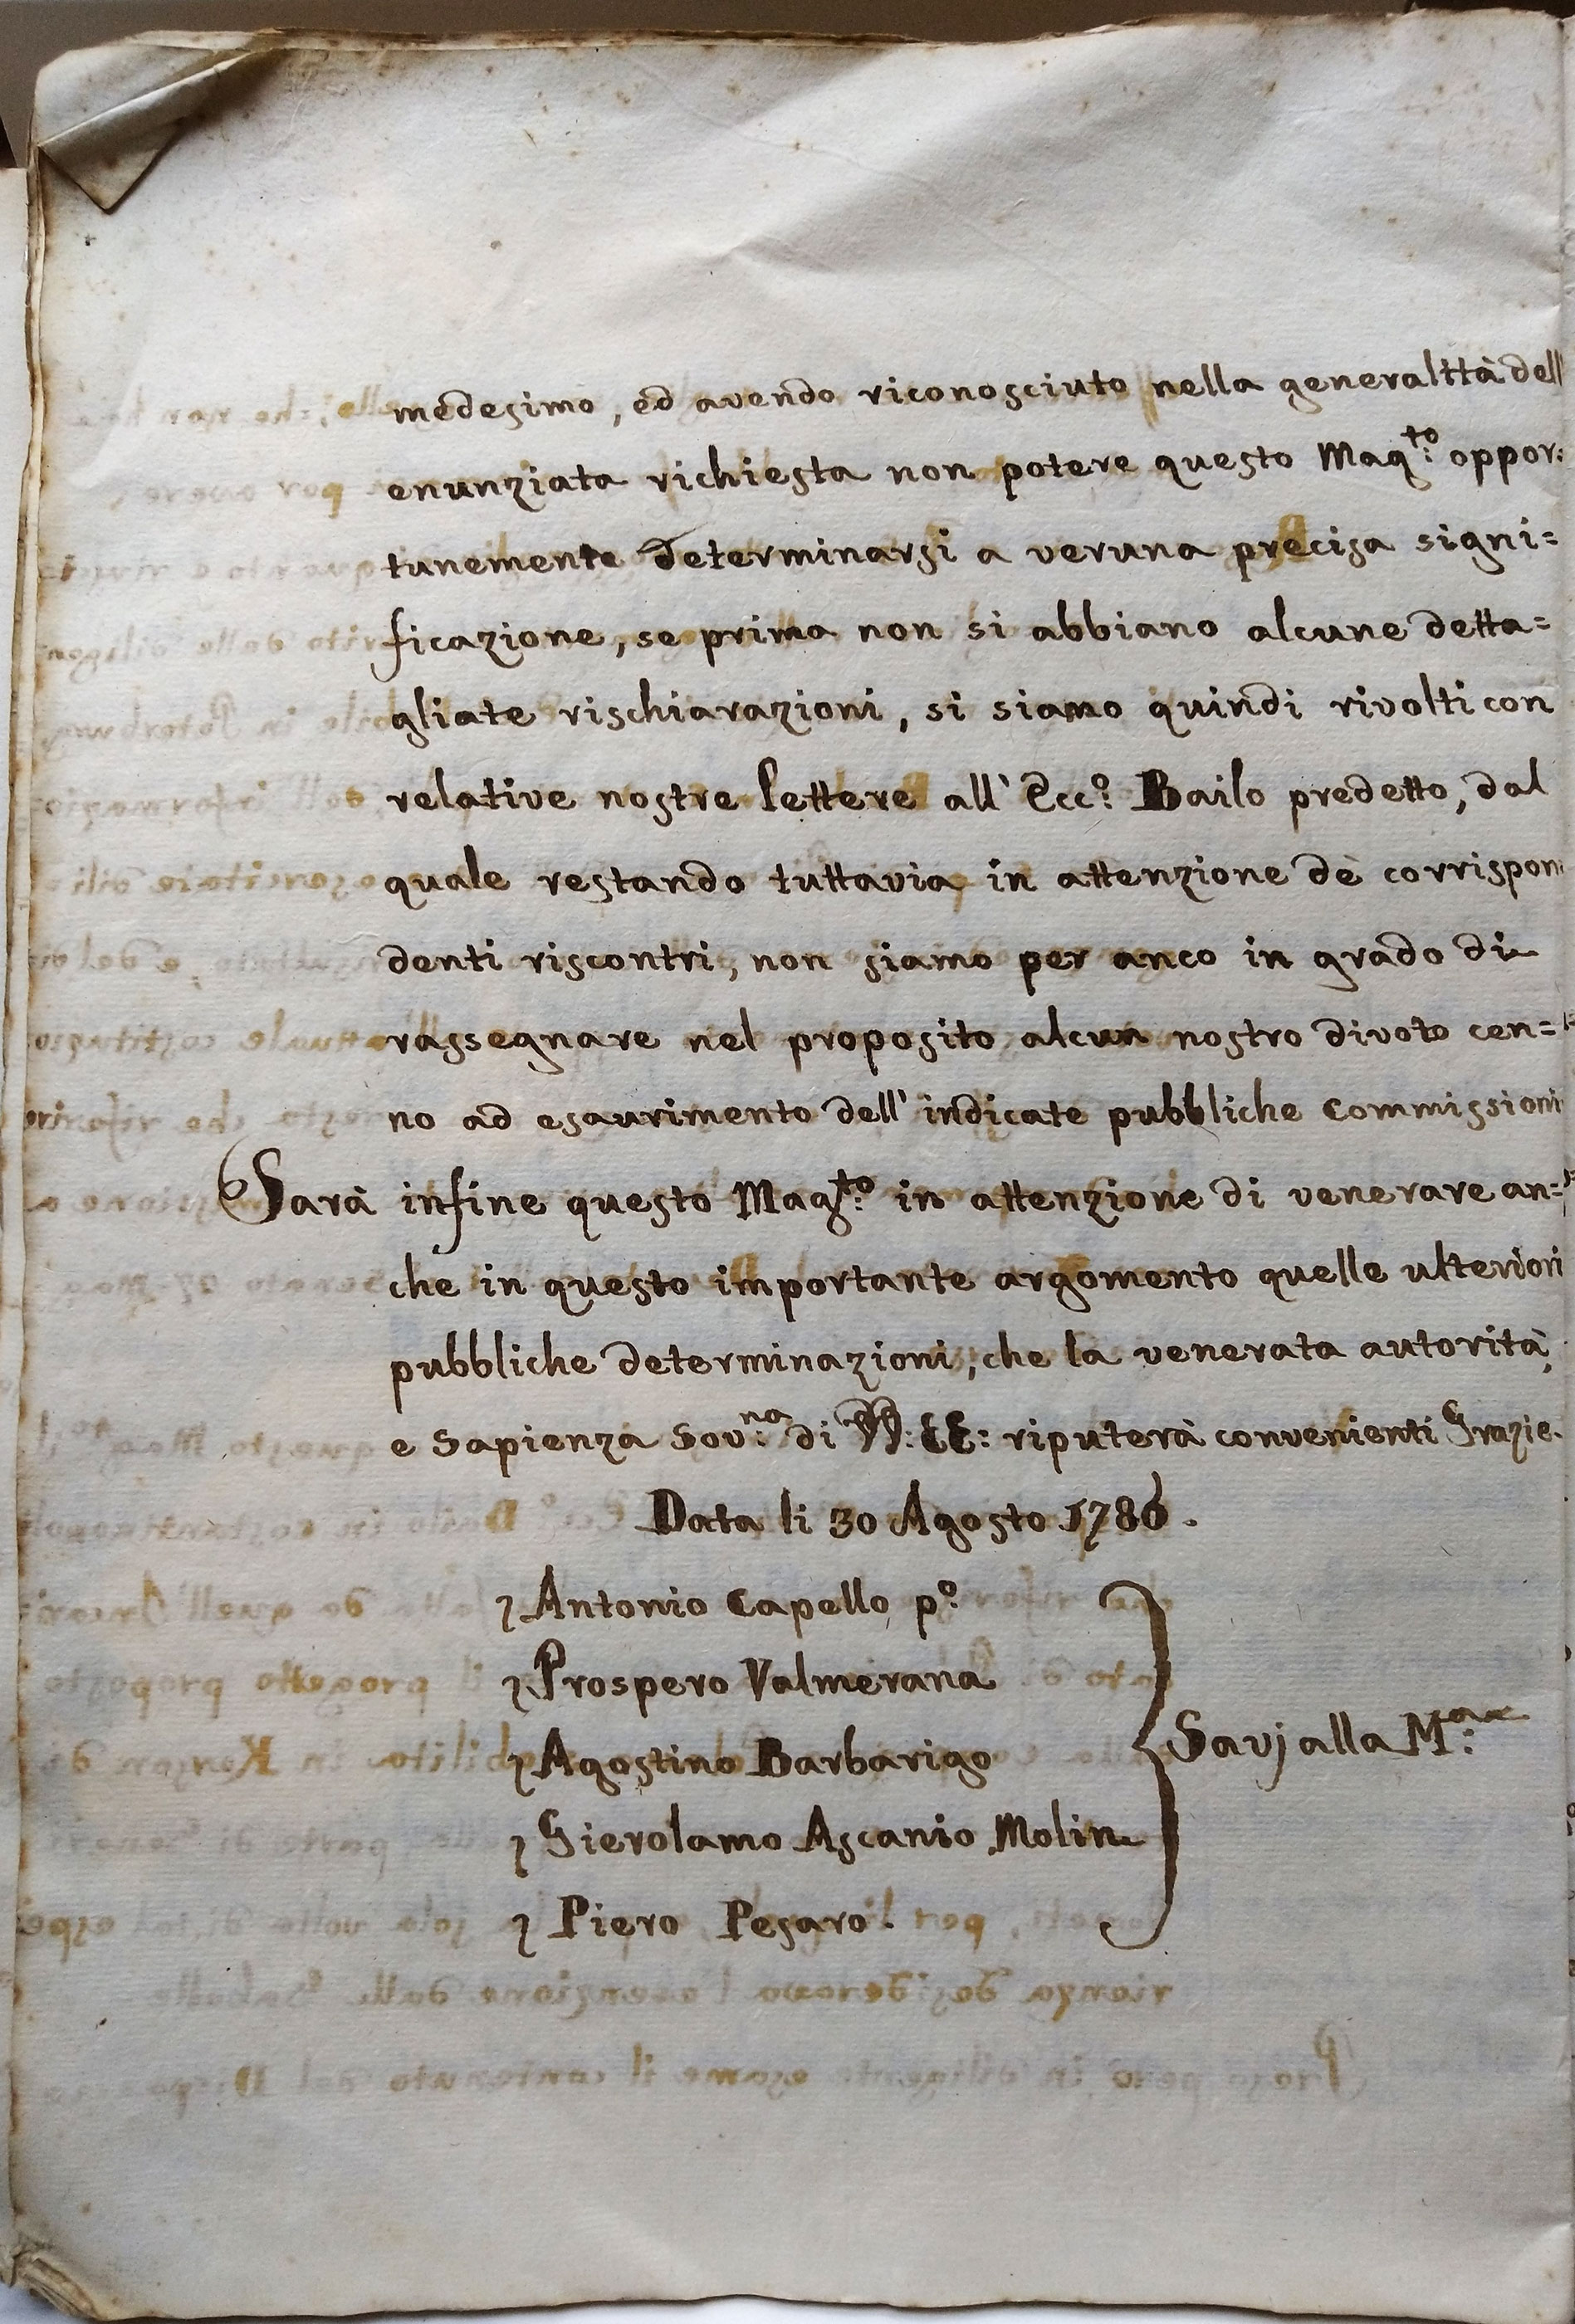 medesimo, ed avendo riconosciuto nella generalità dell'
enunziata richiesta non potere questo Mag:to oppor:
tunemente determinarsi a veruna precisa signi=
ficazione, se prima non si abbiano alcune detta=
gliate rischiarazioni, si siamo quindi rivolti con
relative nostre lettere all' Ecc:o Bailo predetto, dal
quale restando tuttavia in attenzione de corrispon
denti riscontri, non siamo per anco in grado di
rassegnare nel proposito alcun nostro divoto cen=
no ad esaurimento dell' indicate pubbliche Commissioni
Sarà infine questo Mag:to in attenzione di venerare an=
che in questo importante argomento quelle ulteriori
pubbliche determinazioni, che la venerata autorità,
e Sapienza Sov:na di VV: EE: riputerà convenienti Grazie.
Data li 30 Agosto 1786.
Antonio Capello p:o
Prospero Valmerana
Agostino Barbarigo
Savj alla M:
Gierolamo Ascanio Molin
Piero Pesaro